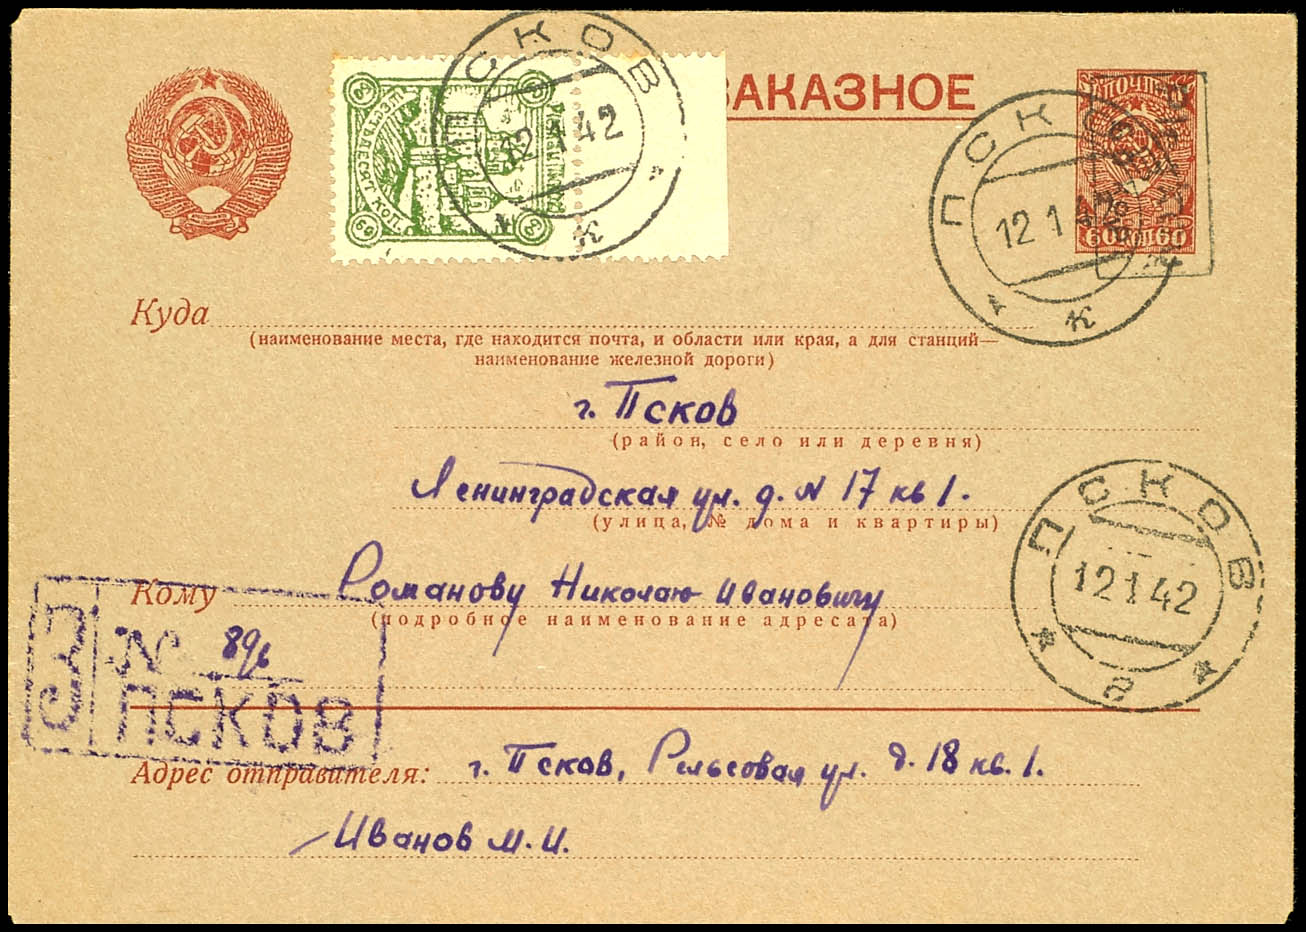 ЗАКАЗНОЕ
ПОЧТА
60 КОП 60
ШЕСТЬДЕСЯТ КОП
60
60
60
60
ПСКОВ
12 1 42
к
ПСКОВ
12 1 4
к
Куда
(наименование места, где находится почта, и области или края, а для станций—
наименование железной дороги)
г. Псков
(район, село или деревня)
Ленинградская ул. д. N 17 кв 1.
(улица, № дома и квартиры)
ПСКОВ
12 1 42
Кому Романову Николаю Ивановичу
(подробное наименование адресата)
З № 896
ПСКОВ
Адрес отправителя: г. Псков, Рельсовая ул. д. 18 кв. 1.
Иванов М. И.